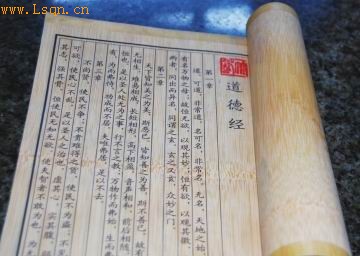 www.Lsqn.cn
道德经
第一章
道，可道，非常道。名可名，非常名。无名，天地之始
有名万物之母。故恒无欲，以观其妙；恒有欲，以观其徼。
两者，同出而异名，同谓之玄。玄之又玄，众妙之门。
第二章
天下皆知美之为美，斯恶已；皆知善之为善，斯不善已。故有
无相生，难易相成，长短相形，高下相盈，音声相和，前后相随，
恒也。是以圣人处无为之事，行不言之教；万物作而弗始，生
有，为而弗恃，功成而不居。夫唯弗居，是以不去。
第三章
不尚贤，使民不争；不贵难得之货，使民不为盗；不见
可欲，使民心不乱。是以圣人之治也，虚其心，实其腹，弱
其志，强其骨，恒使民无知无欲，使夫智者不敢为也。为无